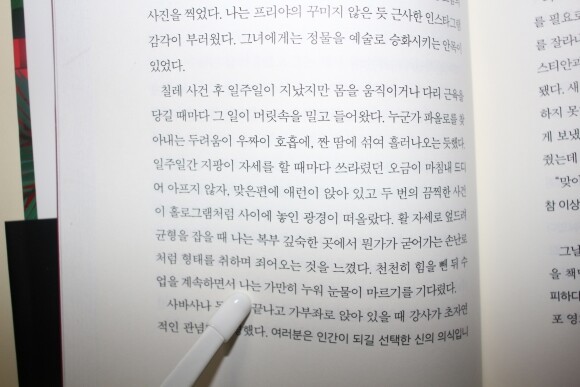 사진을 찍었다. 나는 프리야의 꾸미지 않은 듯 근사한 인스타그램
감각이 부러웠다. 그녀에게는 정물을 예술로 승화시키는 안목이
있었다.
칠레 사건 후 일주일이 지났지만 몸을 움직이거나 다리 근육을
당길 때마다 그 일이 머릿속을 밀고 들어왔다. 누군가 파울로를 찾
아내는 두려움이 우짜이 호흡에, 짠 땀에 섞여 흘러나오는 듯했다.
일주일간 지팡이 자세를 할 때마다 쓰라렸던 오금이 마침내 드디
어 아프지 않자, 맞은편에 애런이 앉아 있고 두 번의 끔찍한 사건
이 홀로그램처럼 사이에 놓인 광경이 떠올랐다. 활 자세로 엎드려
균형을 잡을 때 나는 복부 깊숙한 곳에서 뭔가가 굳어가는 손난로
처럼 형태를 취하며 죄어오는 것을 느꼈다. 천천히 힘을 뺀 뒤 수
업을 계속하면서 나는 가만히 누워 눈물이 마르기를 기다렸다.
사바사나 끝나고 가부좌로 앉아 있을 때 강사가 초자연
적인 관념 했다. 여러분은 인간이 되길 선택한 신의 의식입니
를 필요로
를 잘라
스티안과
됐다. 새
게 보냈
줬는데
"맞아
참 이상
그날
을 책
피하다
포 영